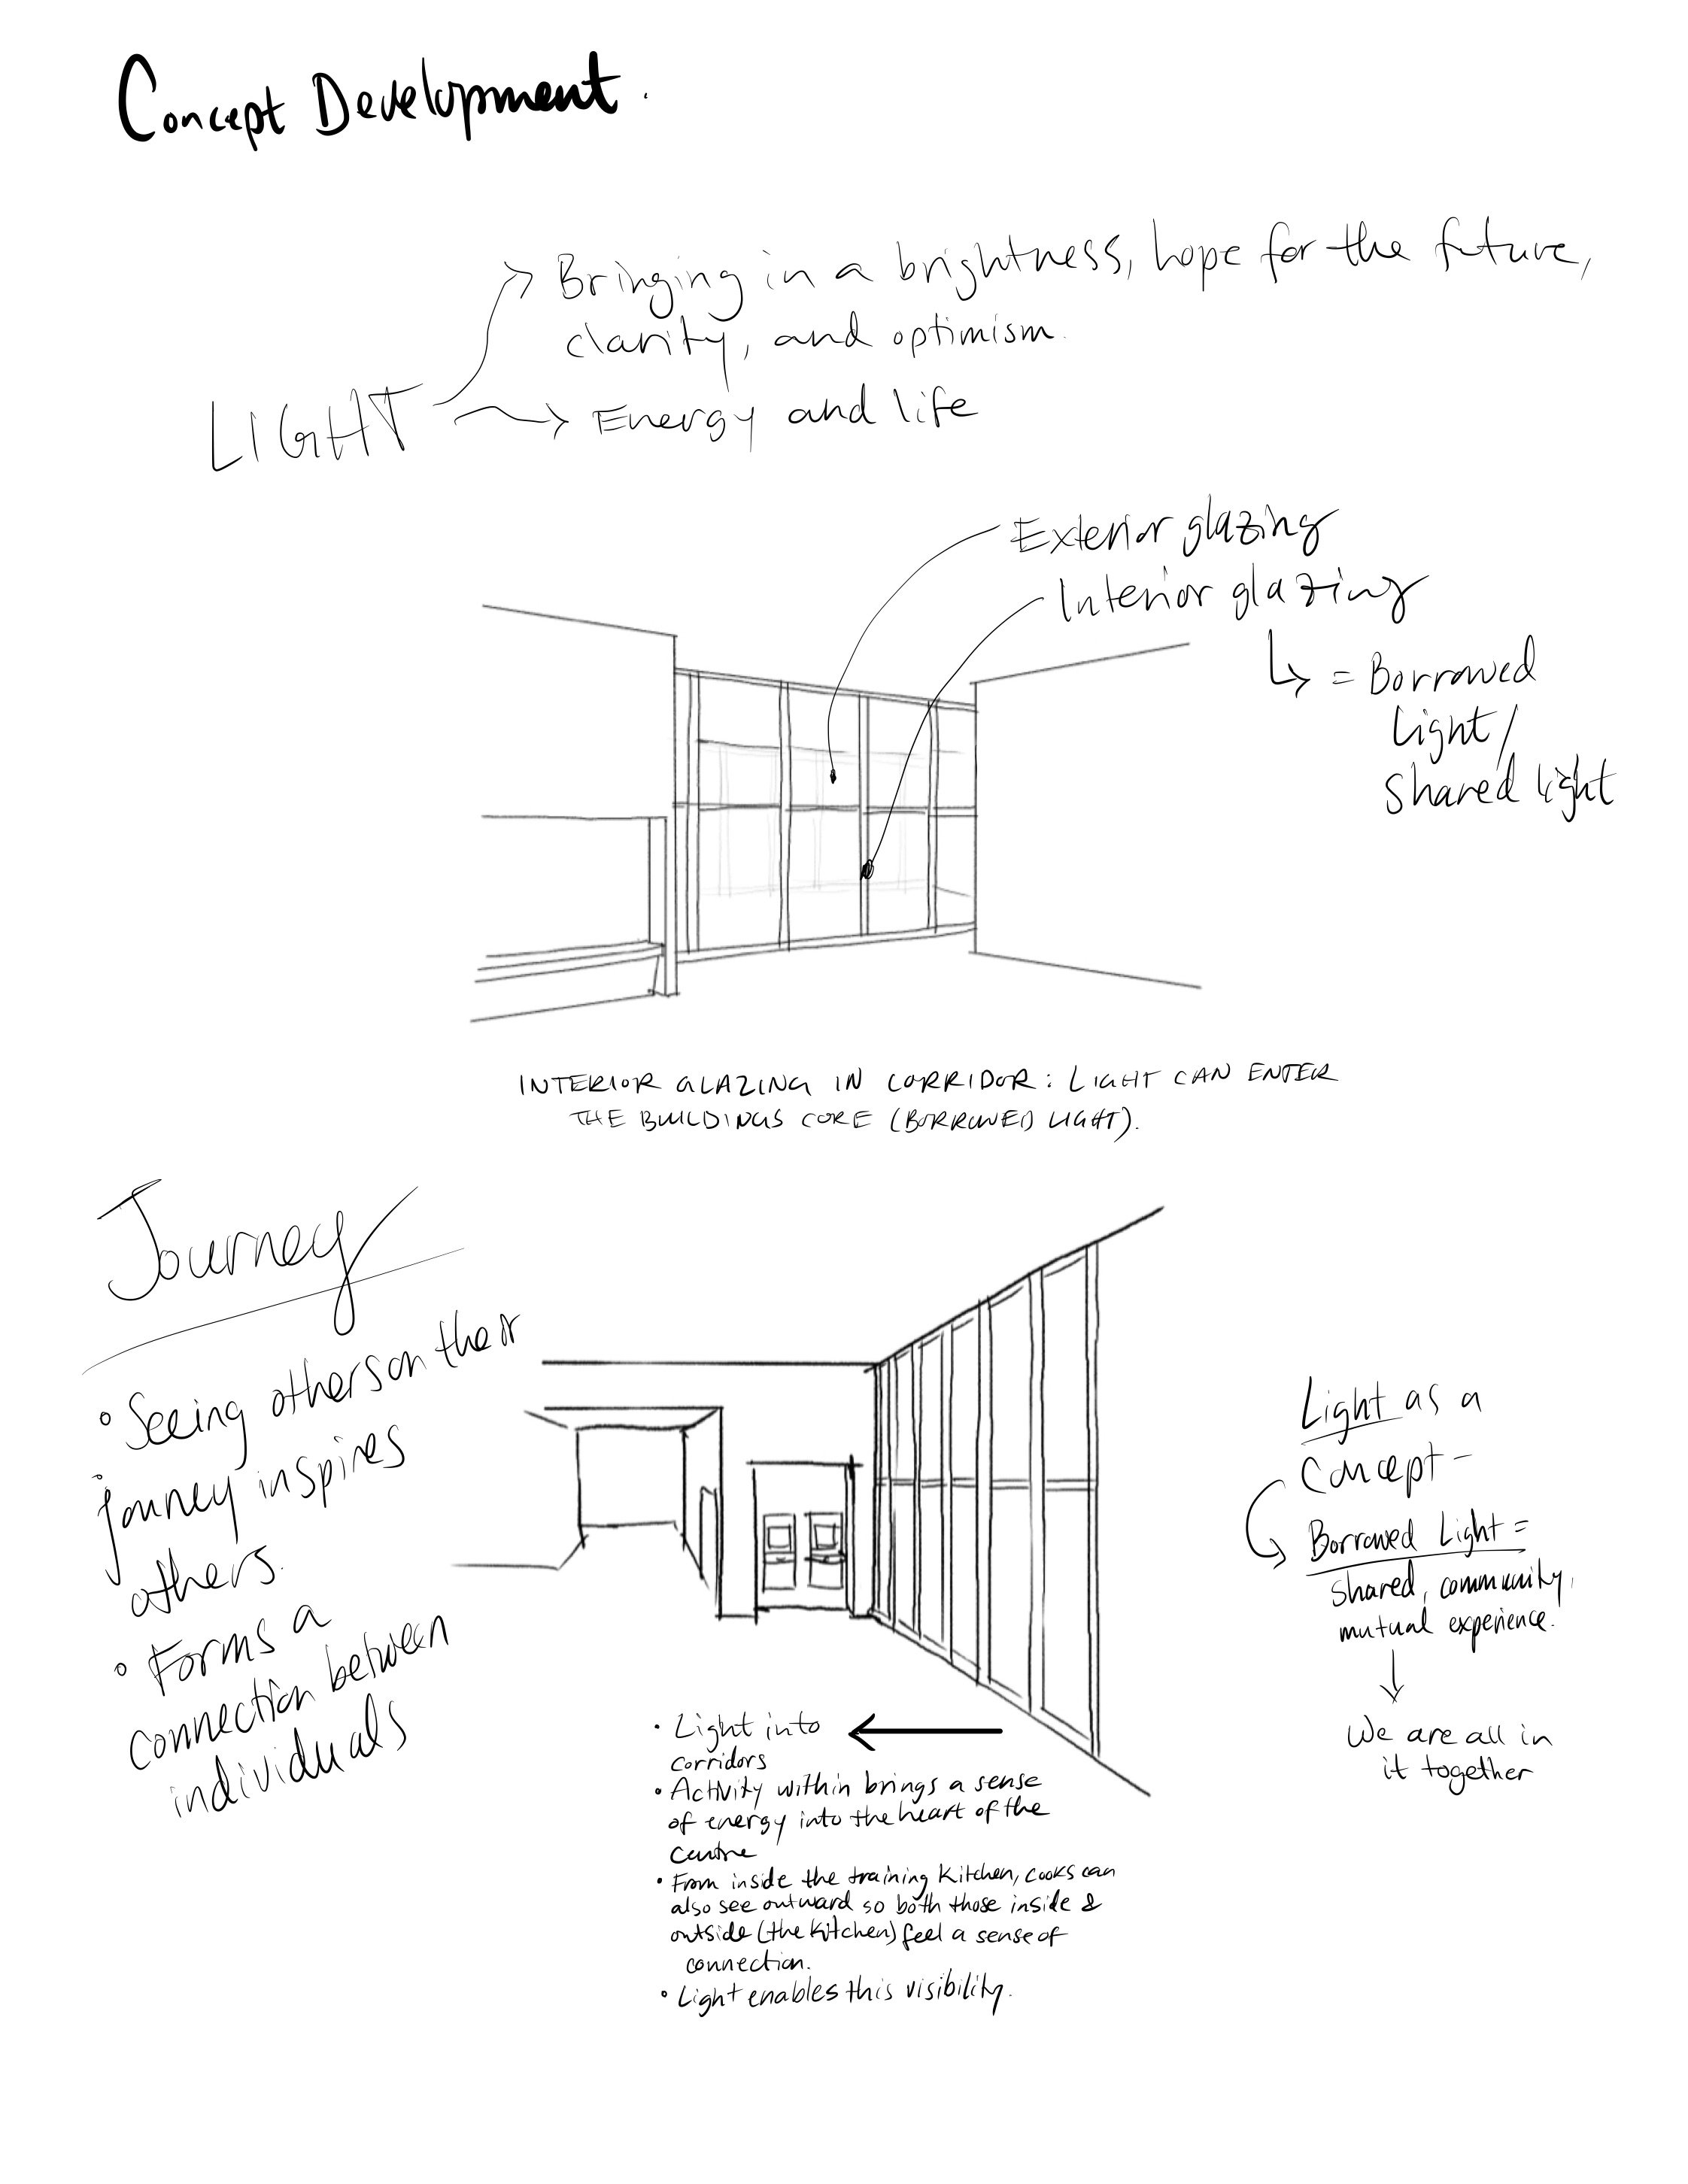 Concept Development.
Bringing in a brightness, hope for the future,
clarity, and optimism.
LIGHT
Energy and life
Exterior glazing
Interior glazing
= Borrowed
Light/
shared light
INTERIOR GLAZING IN CORRIDOR: LIGHT CAN ENTER
THE BUILDINGS CORE (BORROWED LIGHT).
Journey
• Seeing others on their
journey inspires
others.
• Forms a
connection between
individuals
Light as a
Concept -
Borrowed Light =
shared, community,
mutual experience.
We are all in
it together
• Light into
corridors
• Activity within brings a sense
of energy into the heart of the
centre
• From inside the training kitchen, cooks can
also see outward so both those inside &
outside (the kitchen) feel a sense of
connection.
• Light enables this visibility.